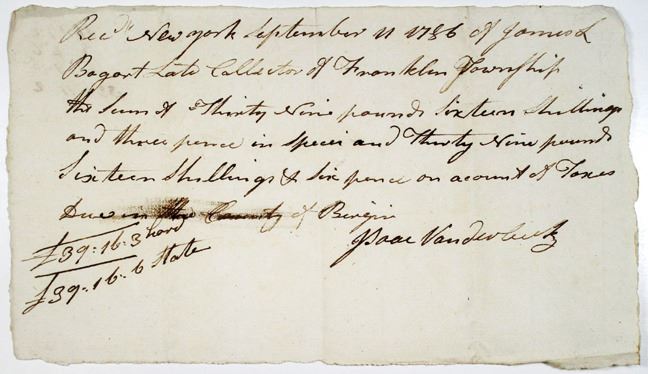 Recd New york September 11 1786 of James L
Bogart Late Collector of Franklin Township
the Sum of Thirty Nine pounds Sixteen Shillings
and three pence in Specei and Thirty Nine pounds
Sixteen Shillings & Six pence on acount of Taxes
Due in the County of Bergin
£39-16-3 hard
£39-16-6 State
Isaac Vanderbeek